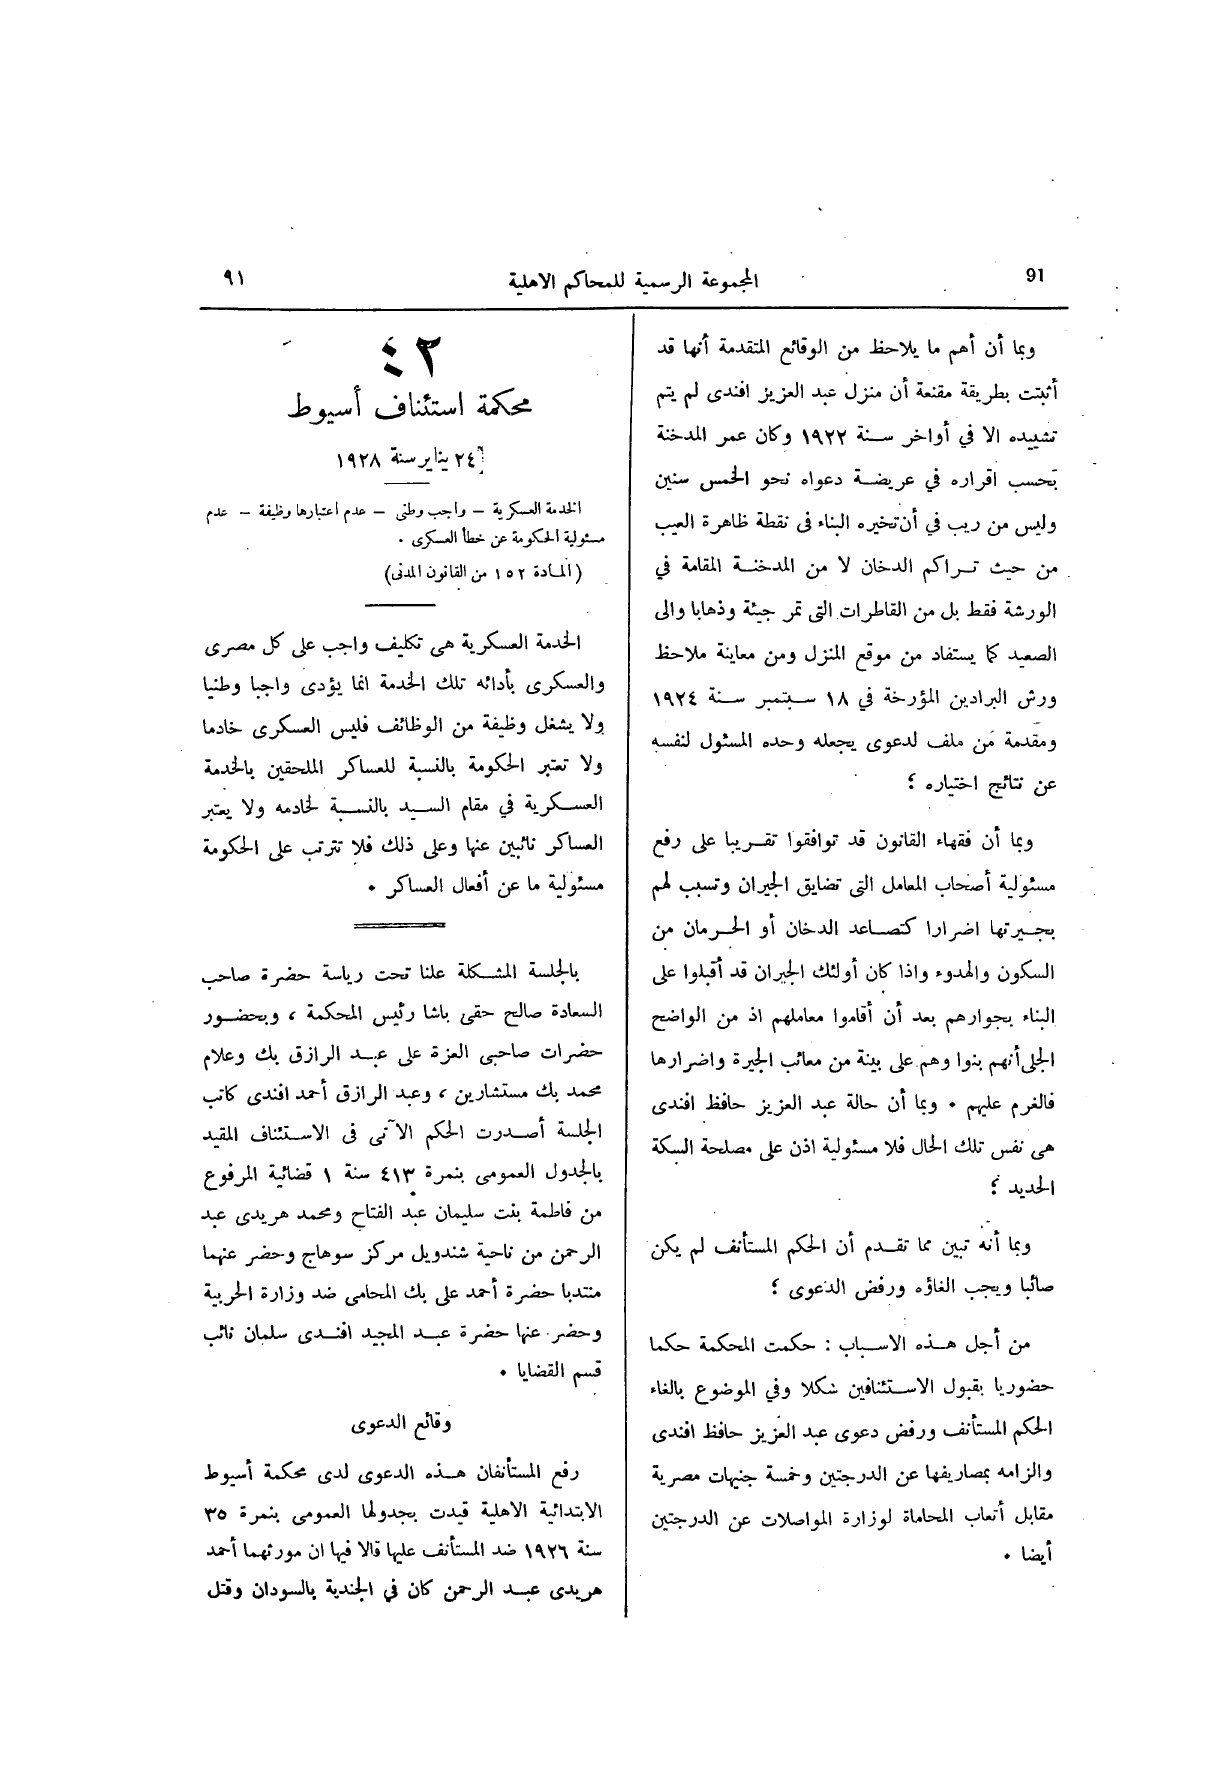 91
المجموعة الرسمية للمحاكم الاهلية
٩١
وبما أن أهم ما يلاحظ من الوقائع المتقدمة أنها قد
أثبتت بطريقة مقنعة أن منزل عبد العزيز افندى لم يتم
تشييده الا في أواخر سنة ١٩٢٢ وكان عمر المدخنة
بحسب اقراره في عريضة دعواه نحو الخمس سنين
وليس من ريب في أن تخيره البناء فى نقطة ظاهرة العيب
من حيث تراكم الدخان لا من المدخنة المقامة في
الورشة فقط بل من القاطرات التى تمر جيئة وذهابا والى
الصعيد كما يستفاد من موقع المنزل ومن معاينة ملاحظ
ورش البرادين المؤرخة في ١٨ سبتمبر سنة ١٩٢٤
ومقدمة من ملف لدعوى يجعله وحده المسئول لنفسه
عن نتائج اختياره ؛
وبما أن فقهاء القانون قد توافقوا تقريبا على رفع
مسئولية أصحاب المعامل التى تضايق الجيران وتسبب لهم
بجيرتها اضرارا كتصاعد الدخان أو الحرمان من
السكون والهدوء واذا كان أولئك الجيران قد أقبلوا على
البناء بجوارهم بعد أن أقاموا معاملهم اذ من الواضح
الجلى أنهم بنوا وهم على بينة من معائب الجيرة واضرارها
فالغرم عليهم . وبما أن حالة عبد العزيز حافظ افندى
هى نفس تلك الحال فلا مسئولية اذن على مصلحة السكة
الحديد ؛
وبما أنه تبين مما تقدم أن الحكم المستأنف لم يكن
صائبا ويجب الغاؤه ورفض الدعوى ؛
من أجل هذه الاسباب : حكمت المحكمة حكما
حضوريا بقبول الاستئنافين شكلا وفي الموضوع بالغاء
الحكم المستأنف ورفض دعوى عبد العزيز حافظ افندى
والزامه بمصاريفها عن الدرجتين وخمسة جنيهات مصرية
مقابل أتعاب المحاماة لوزارة المواصلات عن الدرجتين
أيضا .
٤٢
محكمة استئناف أسيوط
٢٤ يناير سنة ١٩٢٨
الخدمة العسكرية – واجب وطنى – عدم اعتبارها وظيفة – عدم
مسئولية الحكومة عن خطأ العسكرى .
(المادة ١٥٢ من القانون المدنى)
الخدمة العسكرية هى تكليف واجب على كل مصرى
والعسكرى بأدائه تلك الخدمة انما يؤدى واجبا وطنيا
ولا يشغل وظيفة من الوظائف فليس العسكرى خادما
ولا تعتبر الحكومة بالنسبة للعساكر الملحقين بالخدمة
العسكرية في مقام السيد بالنسبة لخادمه ولا يعتبر
العساكر نائبين عنها وعلى ذلك فلا تترتب على الحكومة
مسئولية ما عن أفعال العساكر .
بالجلسة المشكلة علنا تحت رياسة حضرة صاحب
السعادة صالح حقى باشا رئيس المحكمة ، وبحضور
حضرات صاحبى العزة على عبد الرازق بك وعلام
محمد بك مستشارين ، وعبد الرازق أحمد افندى كاتب
الجلسة أصدرت الحكم الآتى فى الاستئناف المقيد
بالجدول العمومى بنمرة ٤١٣ سنة ١ قضائية المرفوع
من فاطمة بنت سليمان عبد الفتاح ومحمد هريدى عبد
الرحمن من ناحية شندويل مركز سوهاج وحضر عنهما
منتدبا حضرة أحمد على بك المحامى ضد وزارة الحربية
وحضر عنها حضرة عبد المجيد افندى سلمان نائب
قسم القضايا .
وقائع الدعوى
رفع المستأنفان هذه الدعوى لدى محكمة أسيوط
الابتدائية الاهلية قيدت بجدولها العمومى بنمرة ٣٥
سنة ١٩٢٦ ضد المستأنف عليها قالا فيها ان مورثهما أحمد
هريدى عبد الرحمن كان في الجندية بالسودان وقتل